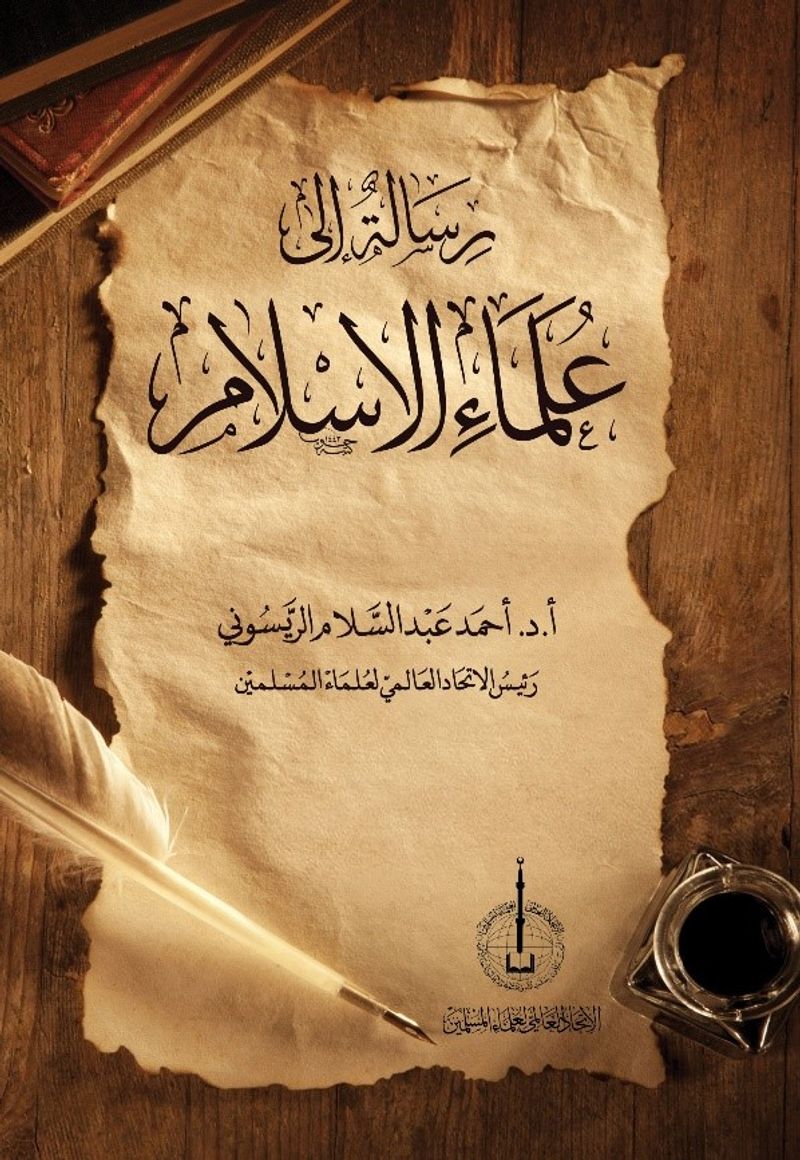 رِسَالَةٌ إلى
عُلَمَاءِ الإسْلَام
أ.د. أحمَد عَبْد السَّلَام الريَّسُوني
رَئيسُ الاتحَاد العَالميّ لعُلمَاء المُسْلمين
الاتحاد العالمي لعلماء المسلمين